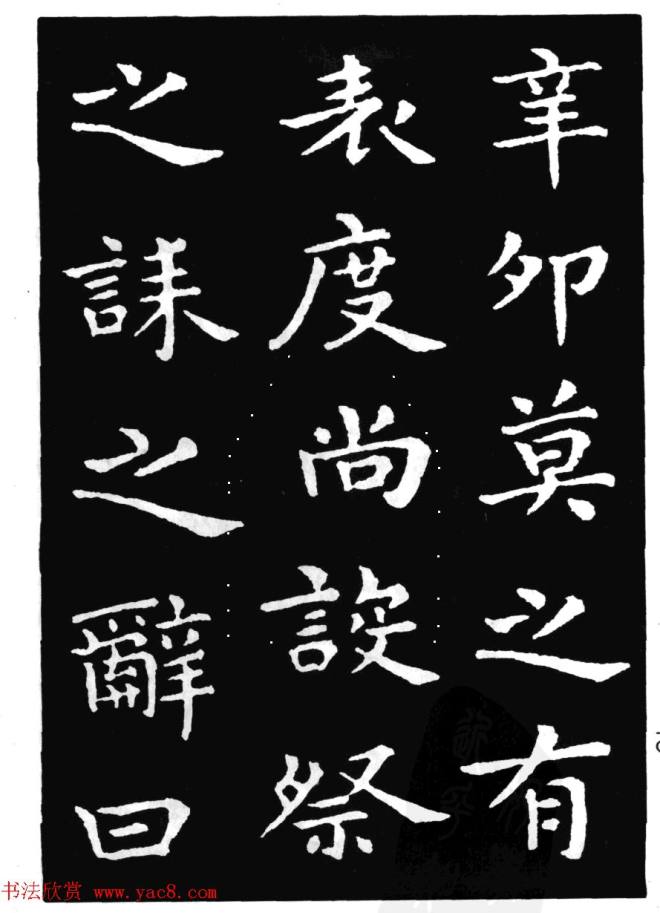 辛卯莫之有
表度尚設祭
之誄之辭曰
书法欣赏 www.yac8.com